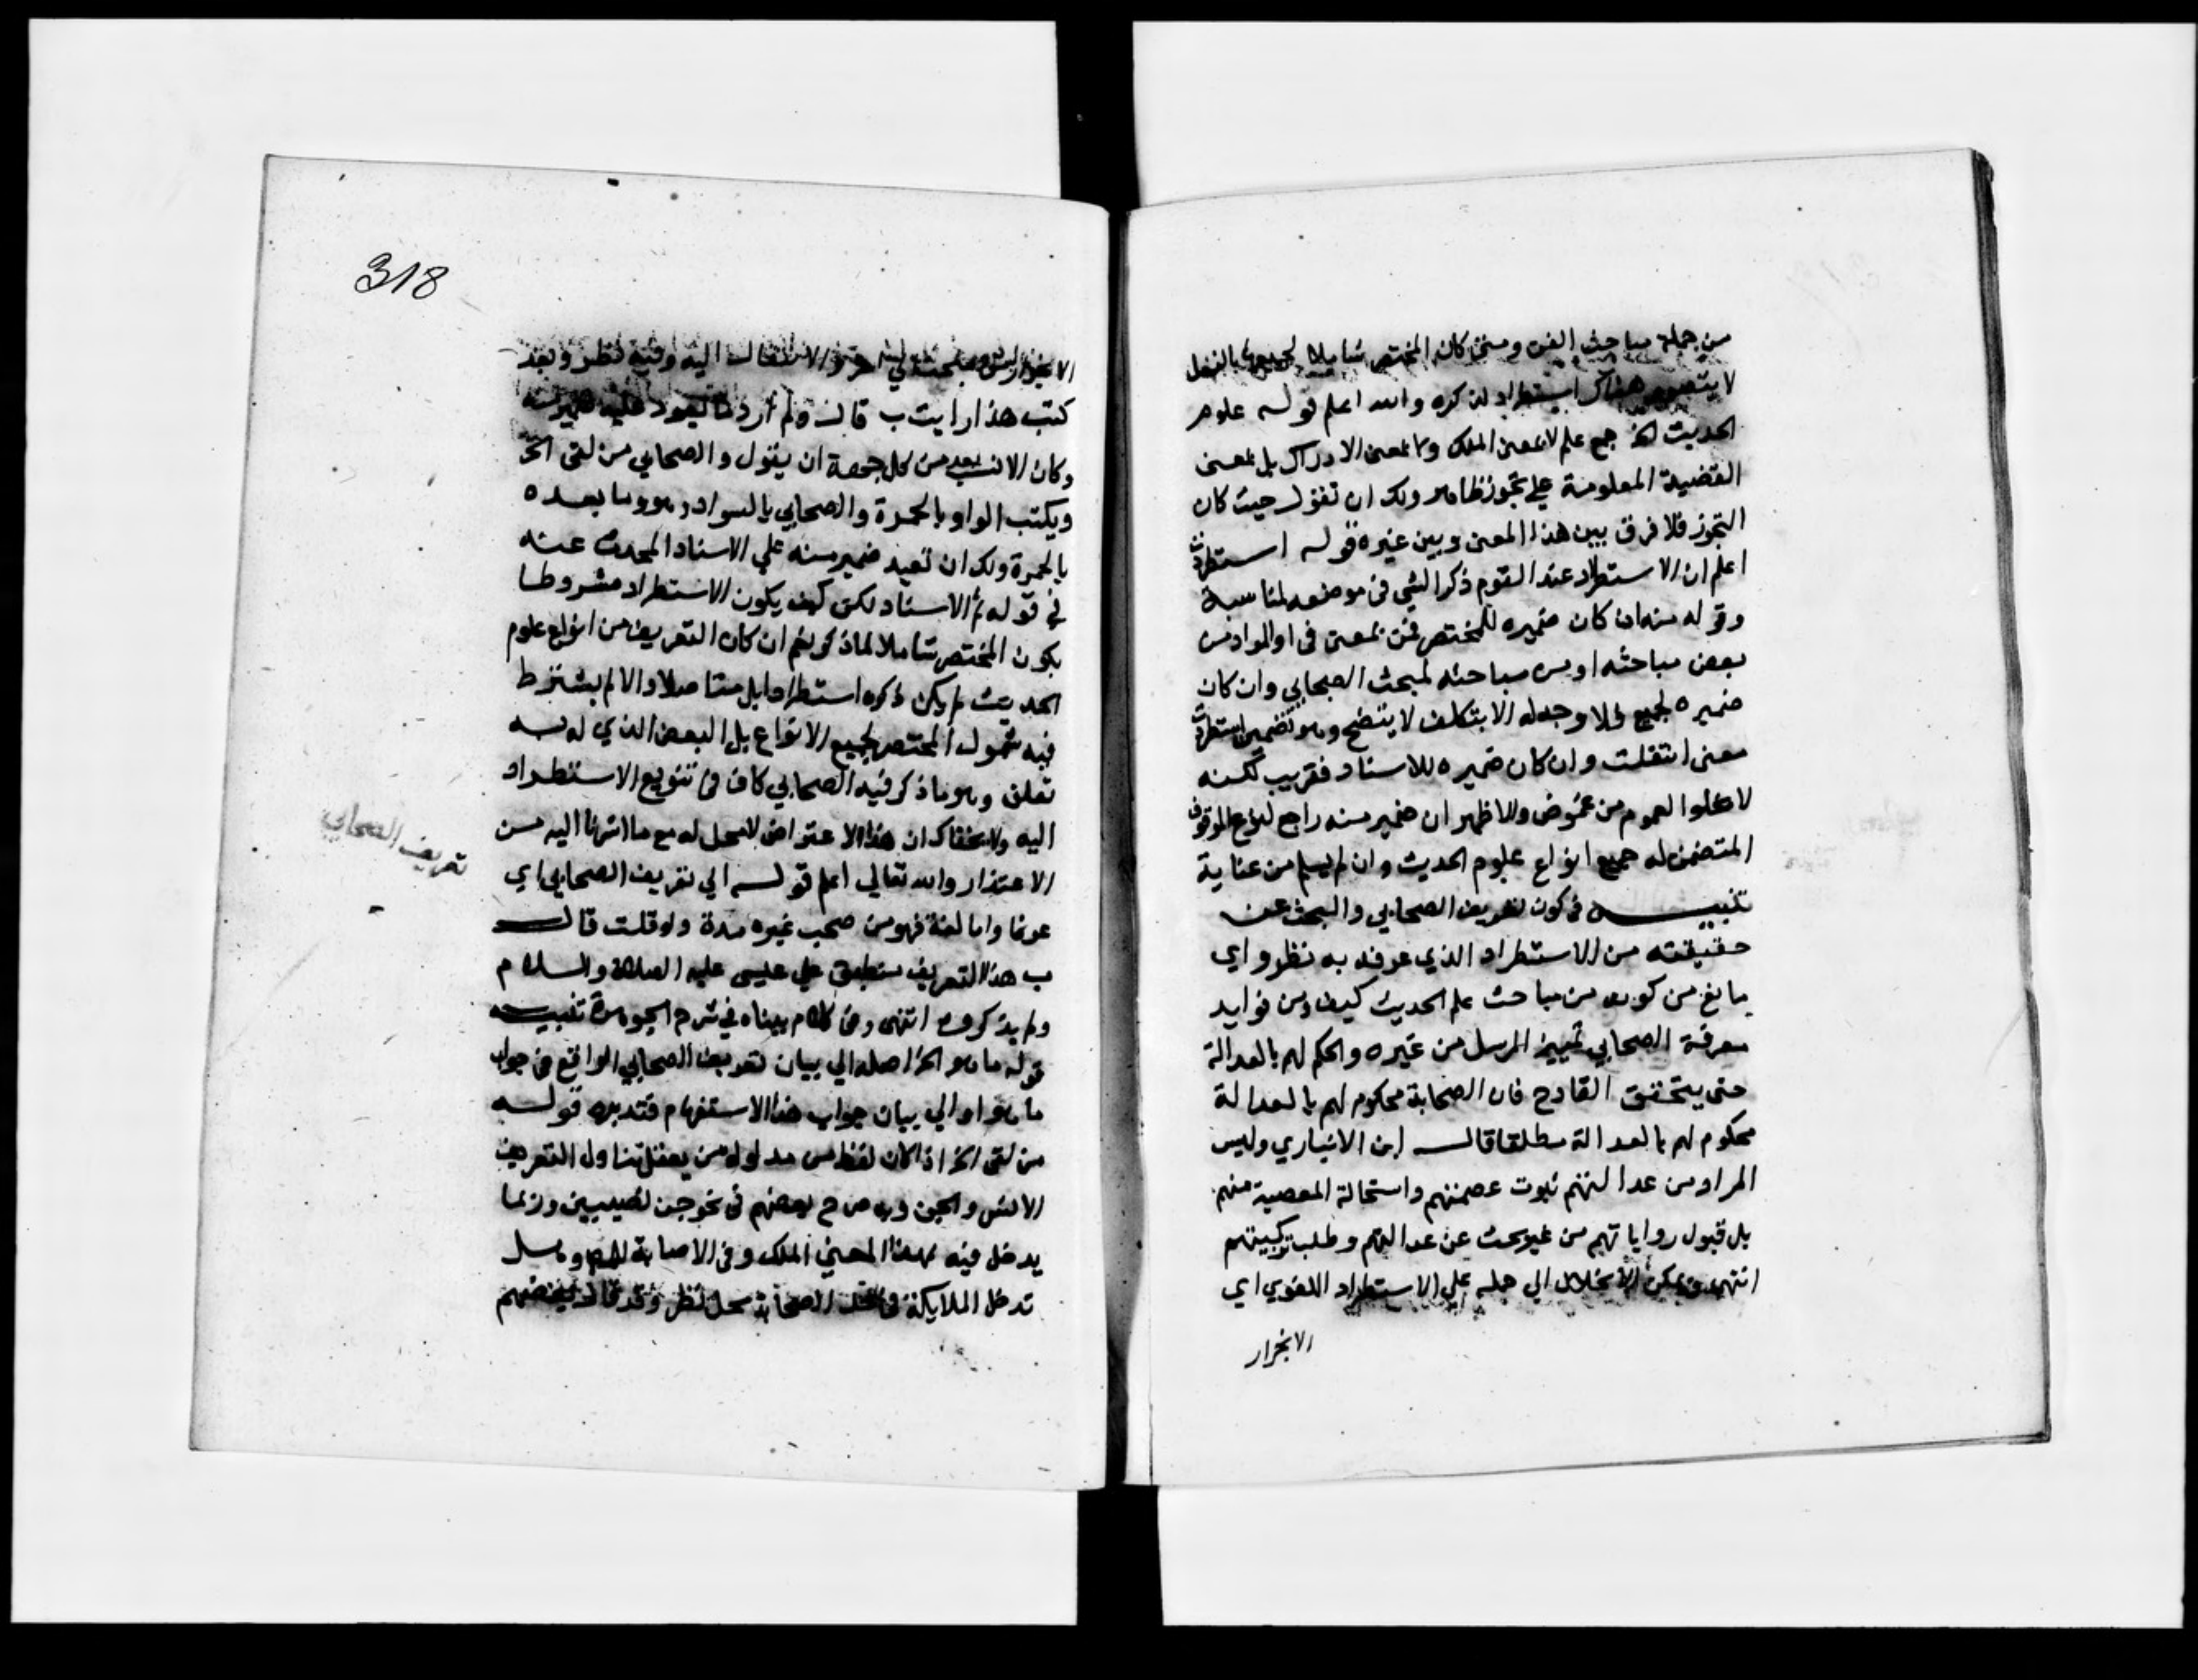 من جملة مباحث الفن ومتى كان المختصر شاملا لجميعها بالفعل
لا يتصور هناك استطراد لذكره والله اعلم قوله علوم
الحديث الخ جمع علم لا بمعنى الملكة ولا بمعنى الادراك بل بمعنى
القضية المعلومة على تجوز ظاهر ولك ان تقول حيث كان
التجوز فلا فرق بين هذا المعنى وبين غيره قوله استطردت
اعلم ان الاستطراد عند القوم ذكر الشي في موضعه لمناسبة
وقوله منه ان كان ضميره للمختصر فمن بمعنى في او المراد من
بعض مباحثه او من مباحثه لمبحث الصحابي وان كان
ضميره لجميع فلا وجه له الا بتكلف لا يتضح وهو تضمين استطردت
معنى انتقلت وان كان ضميره للاسناد فقريب لكنه
لا يخلوا العموم من غموض والاظهر ان ضمير منه راجع لنوع الموقوف
المتضمن له جميع انواع علوم الحديث وان لم يسلم من عناية
تنبيه في كون تعريف الصحابي والبحث عن
حقيقته من الاستطراد الذي عرفه به نظر واي
مانع من كونه من مباحث علم الحديث كيف ومن فوايد
معرفة الصحابي تمييز المرسل من غيره والحكم لهم بالعدالة
حتى يتحقق القادح فان الصحابة محكوم لهم بالعدالة
محكوم لهم بالعدالة مطلقا قال ابن الانباري وليس
المراد من عدالتهم ثبوت عصمتهم واستحالة المعصية منهم
بل قبول رواياتهم من غير بحث عن عدالتهم وطلب تزكيتهم
انتهى ويمكن الانحلال الى حمله على الاستطراد اللغوي اي
الانجرار
318
الانجرار من مبحث الى اخر والانتقال اليه وفيه نظر وبعد
كتب هذا رايت ب قال ولم ار ما يعود عليه ضمير منه
وكان الانسب من كل جهة ان يقول والصحابي من لقى الخ
ويكتب الواو بالحمرة والصحابي بالسواد وهو وما بعده
بالحمرة ولك ان تعيد ضمير منه على الاسناد المحدث عنه
في قوله ثم الاسناد لكن كيف يكون الاستطراد مشروطا
بكون المختصر شاملا لما ذكر نعم ان كان التعريف من انواع علوم
الحديث لم يكن ذكره استطرادا بل متاصلا والا لم يشترط
فيه شمول المختصر لجميع الانواع بل البعض الذي له به
تعلق وهو ما ذكر فيه الصحابي كاف في تنويع الاستطراد
اليه ولا يخفاك ان هذا الاعتراض لا محل له مع ما اشرنا اليه من
الاعتذار والله تعالى اعلم قوله الى تعريف الصحابي اي
تعريف الصحابي
عرفا واما لغة فهو من صحب غيره مدة ولو قلت قال
ب هذا التعريف ينطبق على عيسى عليه الصلاة والسلام
ولم يذكروه انتهى وفي كلام بيناه في شرح الجوهرة تنبيه
قوله ما هو الخ اصله الى بيان تعريف الصحابي الواقع في جواب
ما هو او الى بيان جواب هذا الاستفهام فتدبره قوله
من لقى الخ اذا كان لفظ من مدلوله من يعقل تناول التعريف
الانس والجن وبه صرح بعضهم في نحو جن نصيبين وربما
يدخل فيه بهذا المعنى الملك وفي الاصابة وهل
تدخل الملايكة في حد الصحابة محل نظر وقد قال بعضهم